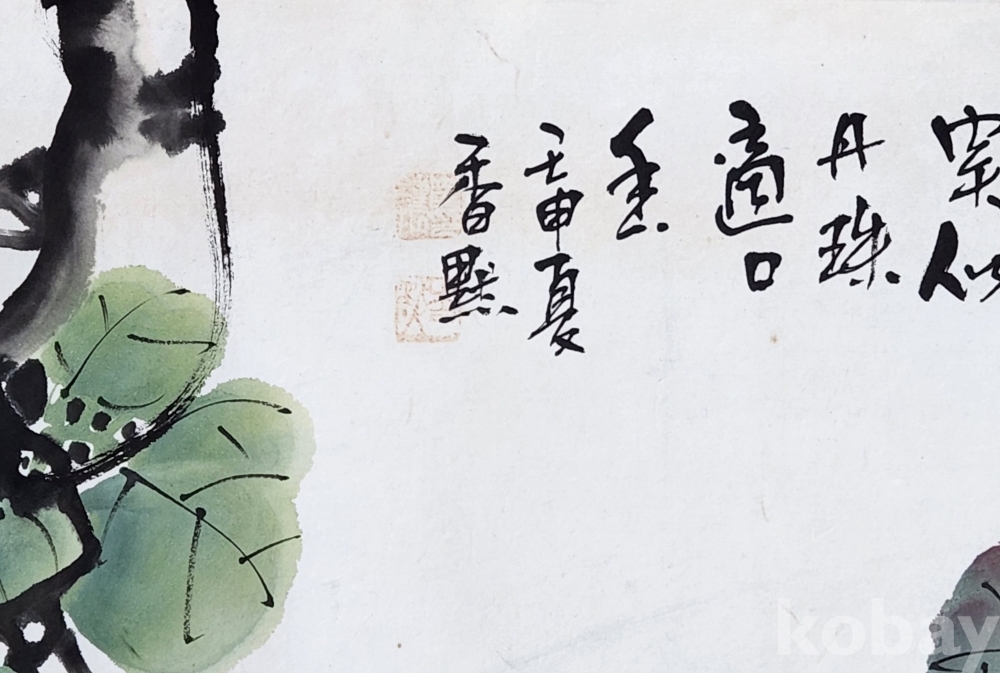 似
丹珠
適口
壬申夏
香默
kobay